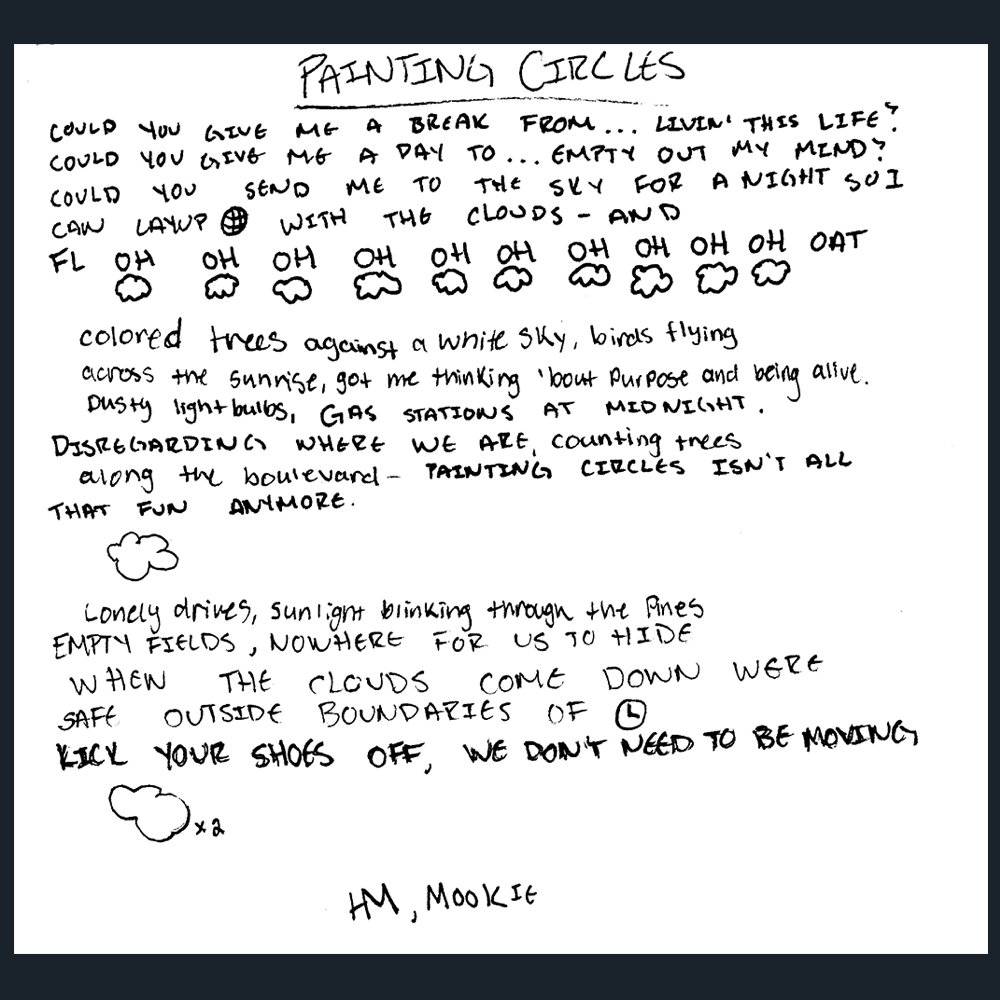 PAINTING CIRCLES
COULD YOU GIVE ME A BREAK FROM... LIVIN' THIS LIFE?
COULD YOU GIVE ME A DAY TO... EMPTY OUT MY MIND?
COULD YOU SEND ME TO THE SKY FOR A NIGHT SO I
CAN LAYUP WITH THE CLOUDS - AND
FL OH OH OH OH OH OH OH OH OH OH OAT
colored trees against a white sky, birds flying
across the sunrise, got me thinking 'bout purpose and being alive.
Dusty lightbulbs, GAS STATIONS AT MIDNIGHT.
DISREGARDING WHERE WE ARE, counting trees
along the boulevard - PAINTING CIRCLES ISN'T ALL
THAT FUN ANYMORE.
Lonely drives, sunlight blinking through the Pines
EMPTY FIELDS, NOWHERE FOR US TO HIDE
WHEN THE CLOUDS COME DOWN WERE
SAFE OUTSIDE BOUNDARIES OF
KICK YOUR SHOES OFF, WE DON'T NEED TO BE MOVING
x2
HM, MOOKIE